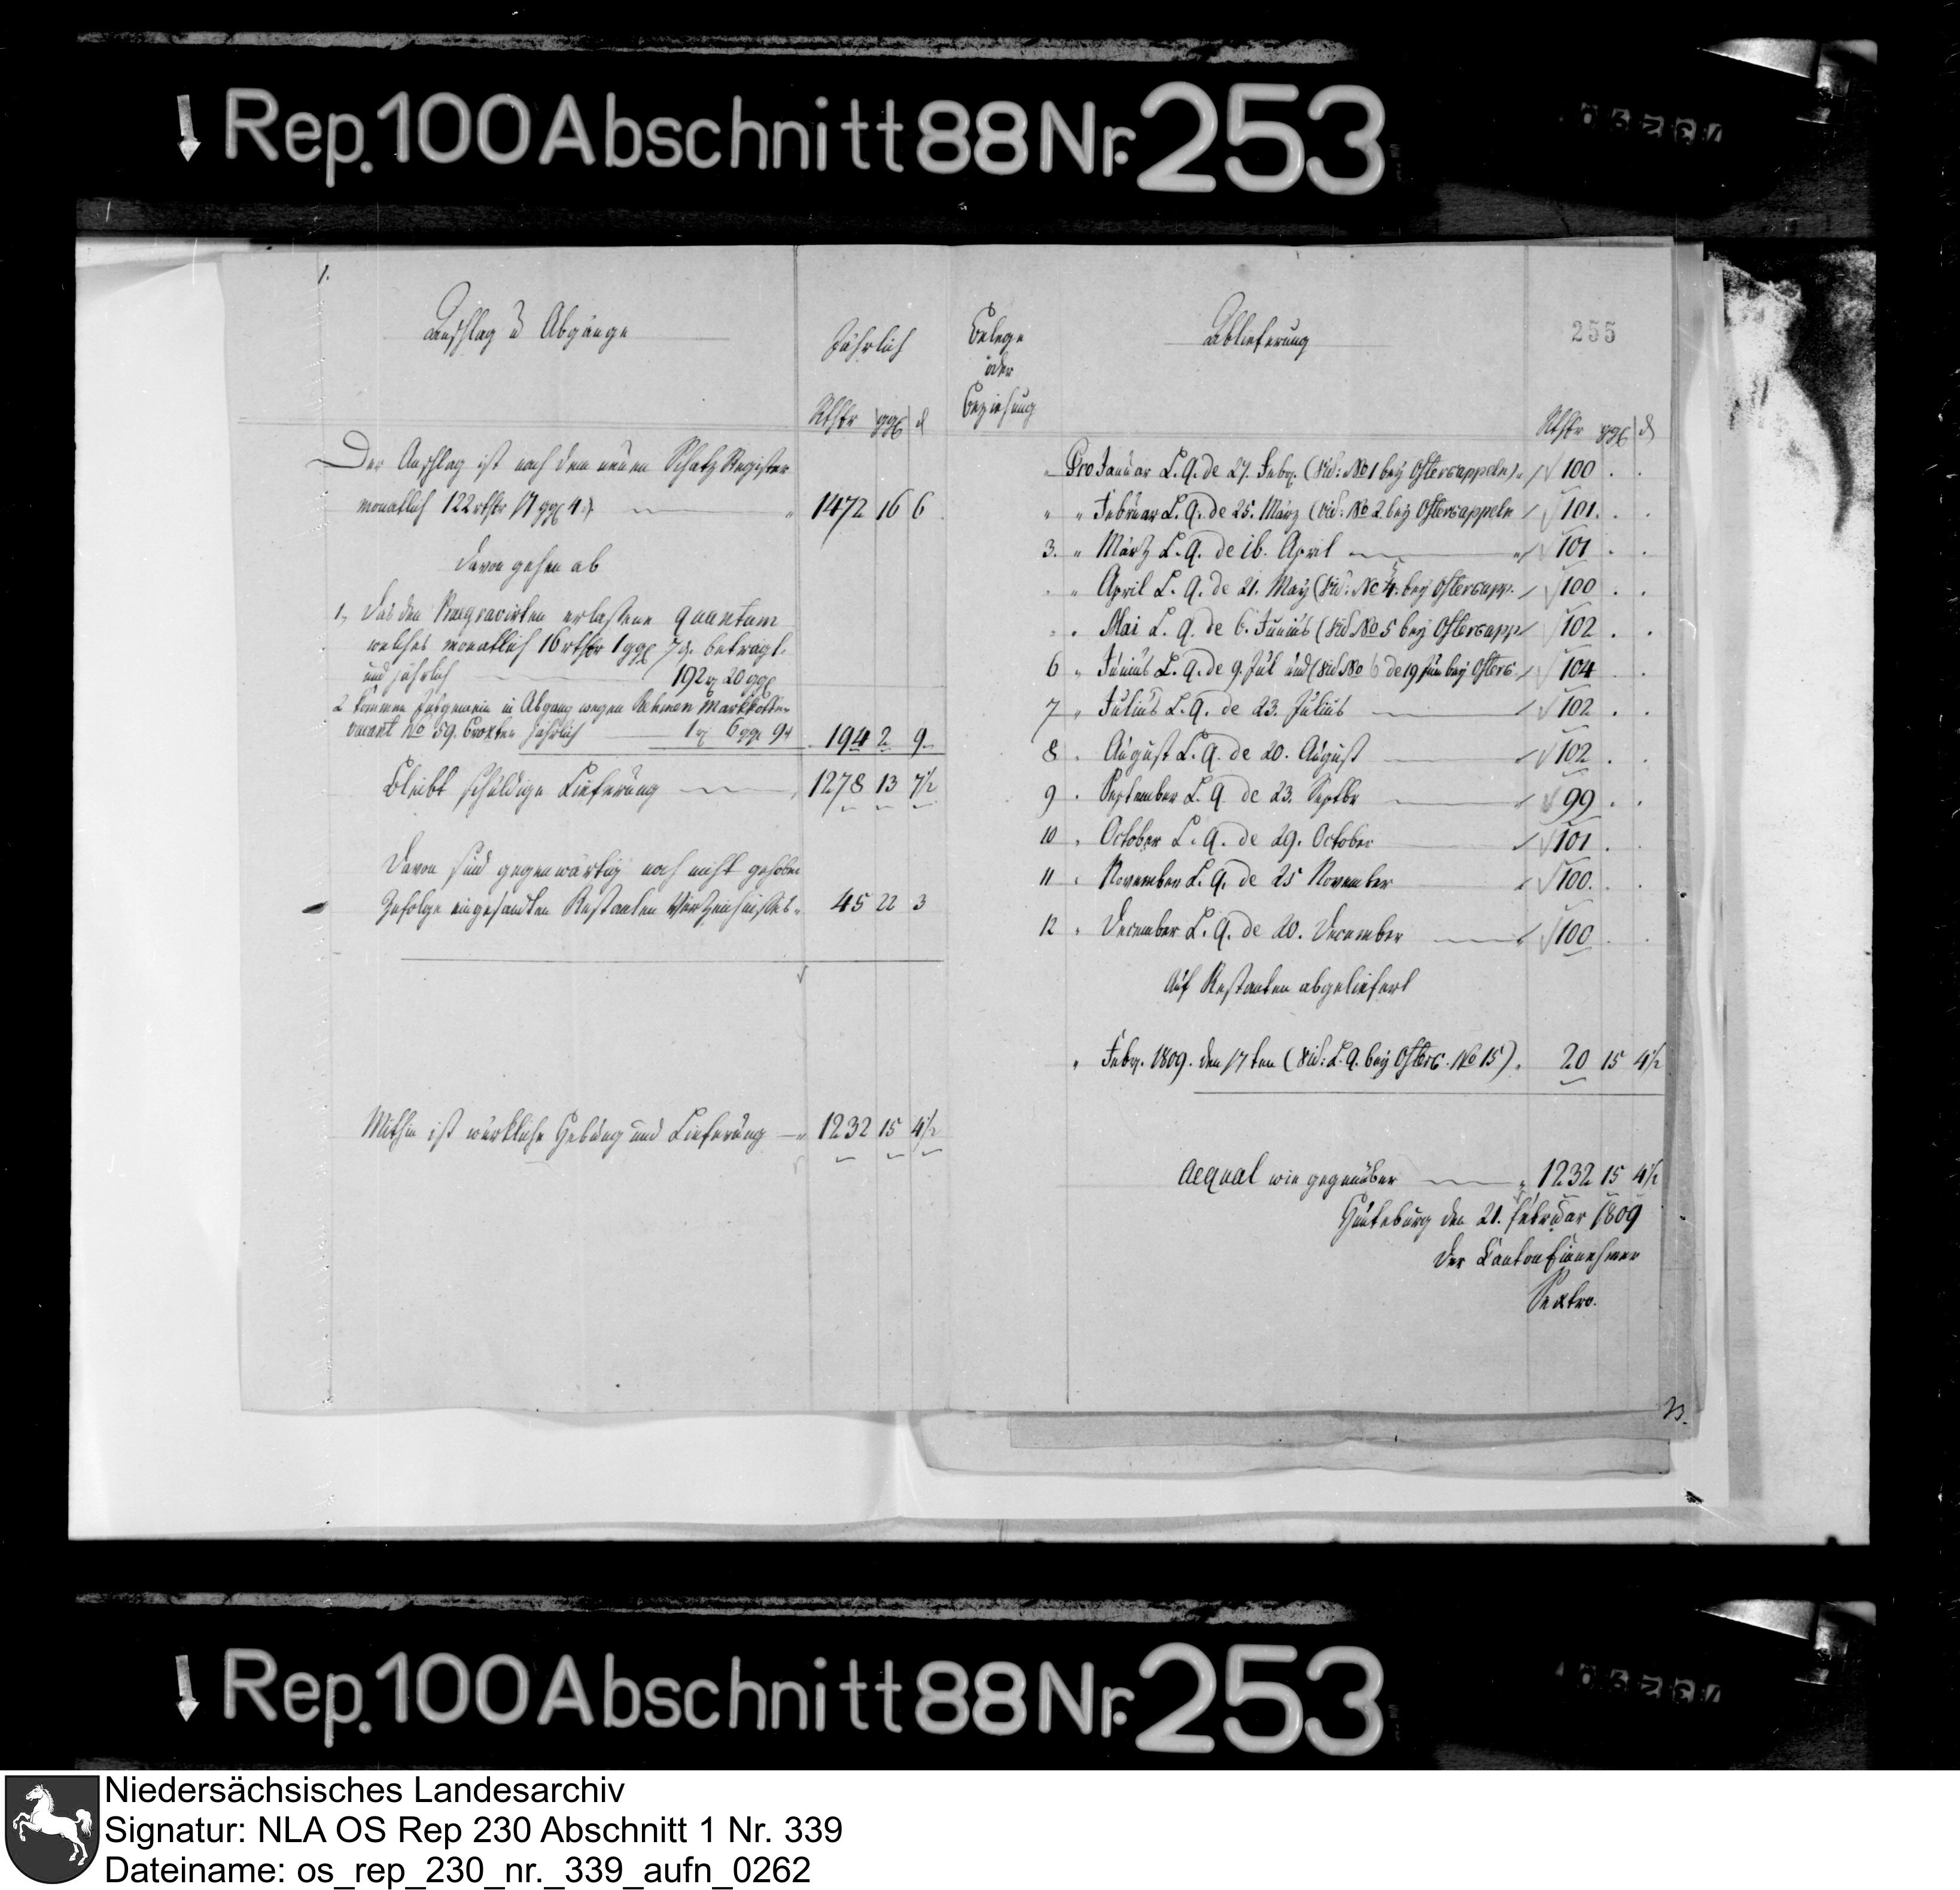 Rep. 100 Abschnitt 88 Nr. 253
1.
Anschlag u Abgänge
Jährlich
Rthlr ggl d
Der Anschlag ist nach dem neuen Schatz Register
monatlich 122 rthlr 17 ggl 4 1472 16 6
davon gehen ab
1, das den Praegravirten erlaßene quantum
welches monatlich 16 rthlr 1 ggl 7 d. beträgt.
und jährlich 192 20 ggl
2 kommen in Abgang wegen Markkötter
vacant No 59. jährlich 1 6 ggl 9 194 2 9
Bleibt schuldige Lieferung 1278 13 7½
Davon sind gegenwärtig noch nicht gehoben
Zufolge eingesandten Restanten Verzeichnißes 45 22 3
Mithin ist würkliche Hebung und Lieferung 1232 15 4½
255
Belege
oder
Beziehung
Ablieferung
Rthlr ggl d
Pro Januar L. q. de 27. Febr. (vid: No 1 bey Ostercappeln) 100
" Februar L. q. de 25. März (vid: No 2 bey Ostercappeln 101
3. " März L. q. de 16. April 101
" April L. q. de 21. May (vid: No 4. bey Ostercapp. 100
" Mai L. q. de 6. Junius (vid No 5 bey Ostercapp 102
6 " Junius L. q. de 9. Jul und (vid No 6 de 19 Jun bey Osterc. 104
7 " Julius L. q. de 23. Julius 102
8 " August L. q. de 20. August 102
9 " September L. q. de 23. Septbr 99
10 " October L. q. de 29. October 101
11 " November L. q. de 25 November 100
12 " December L. q. de 20. December 100
Auf Restanten abgeliefert
" Febr. 1809. den 17ten (vid: L. q. bey Osterc. No 15) 20 15 4½
Aequal wie gegenüber 1232 15 4½
Hünteburg den 21. februar 1809
Der Canton Einnehmer
Sextro.
Rep. 100 Abschnitt 88 Nr. 253
Niedersächsisches Landesarchiv
Signatur: NLA OS Rep 230 Abschnitt 1 Nr. 339
Dateiname: os_rep_230_nr._339_aufn_0262